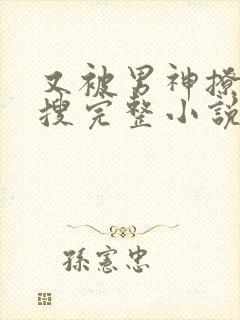 又被男神撩
搜完整小說
孫憲忠